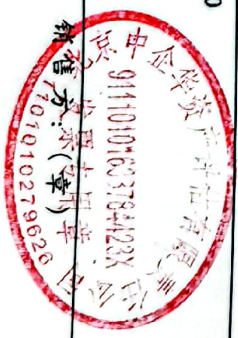 北京中企华资产评估有限责任公司
91110101633784423X
发票专用章
销售方:(章)
1101010279626